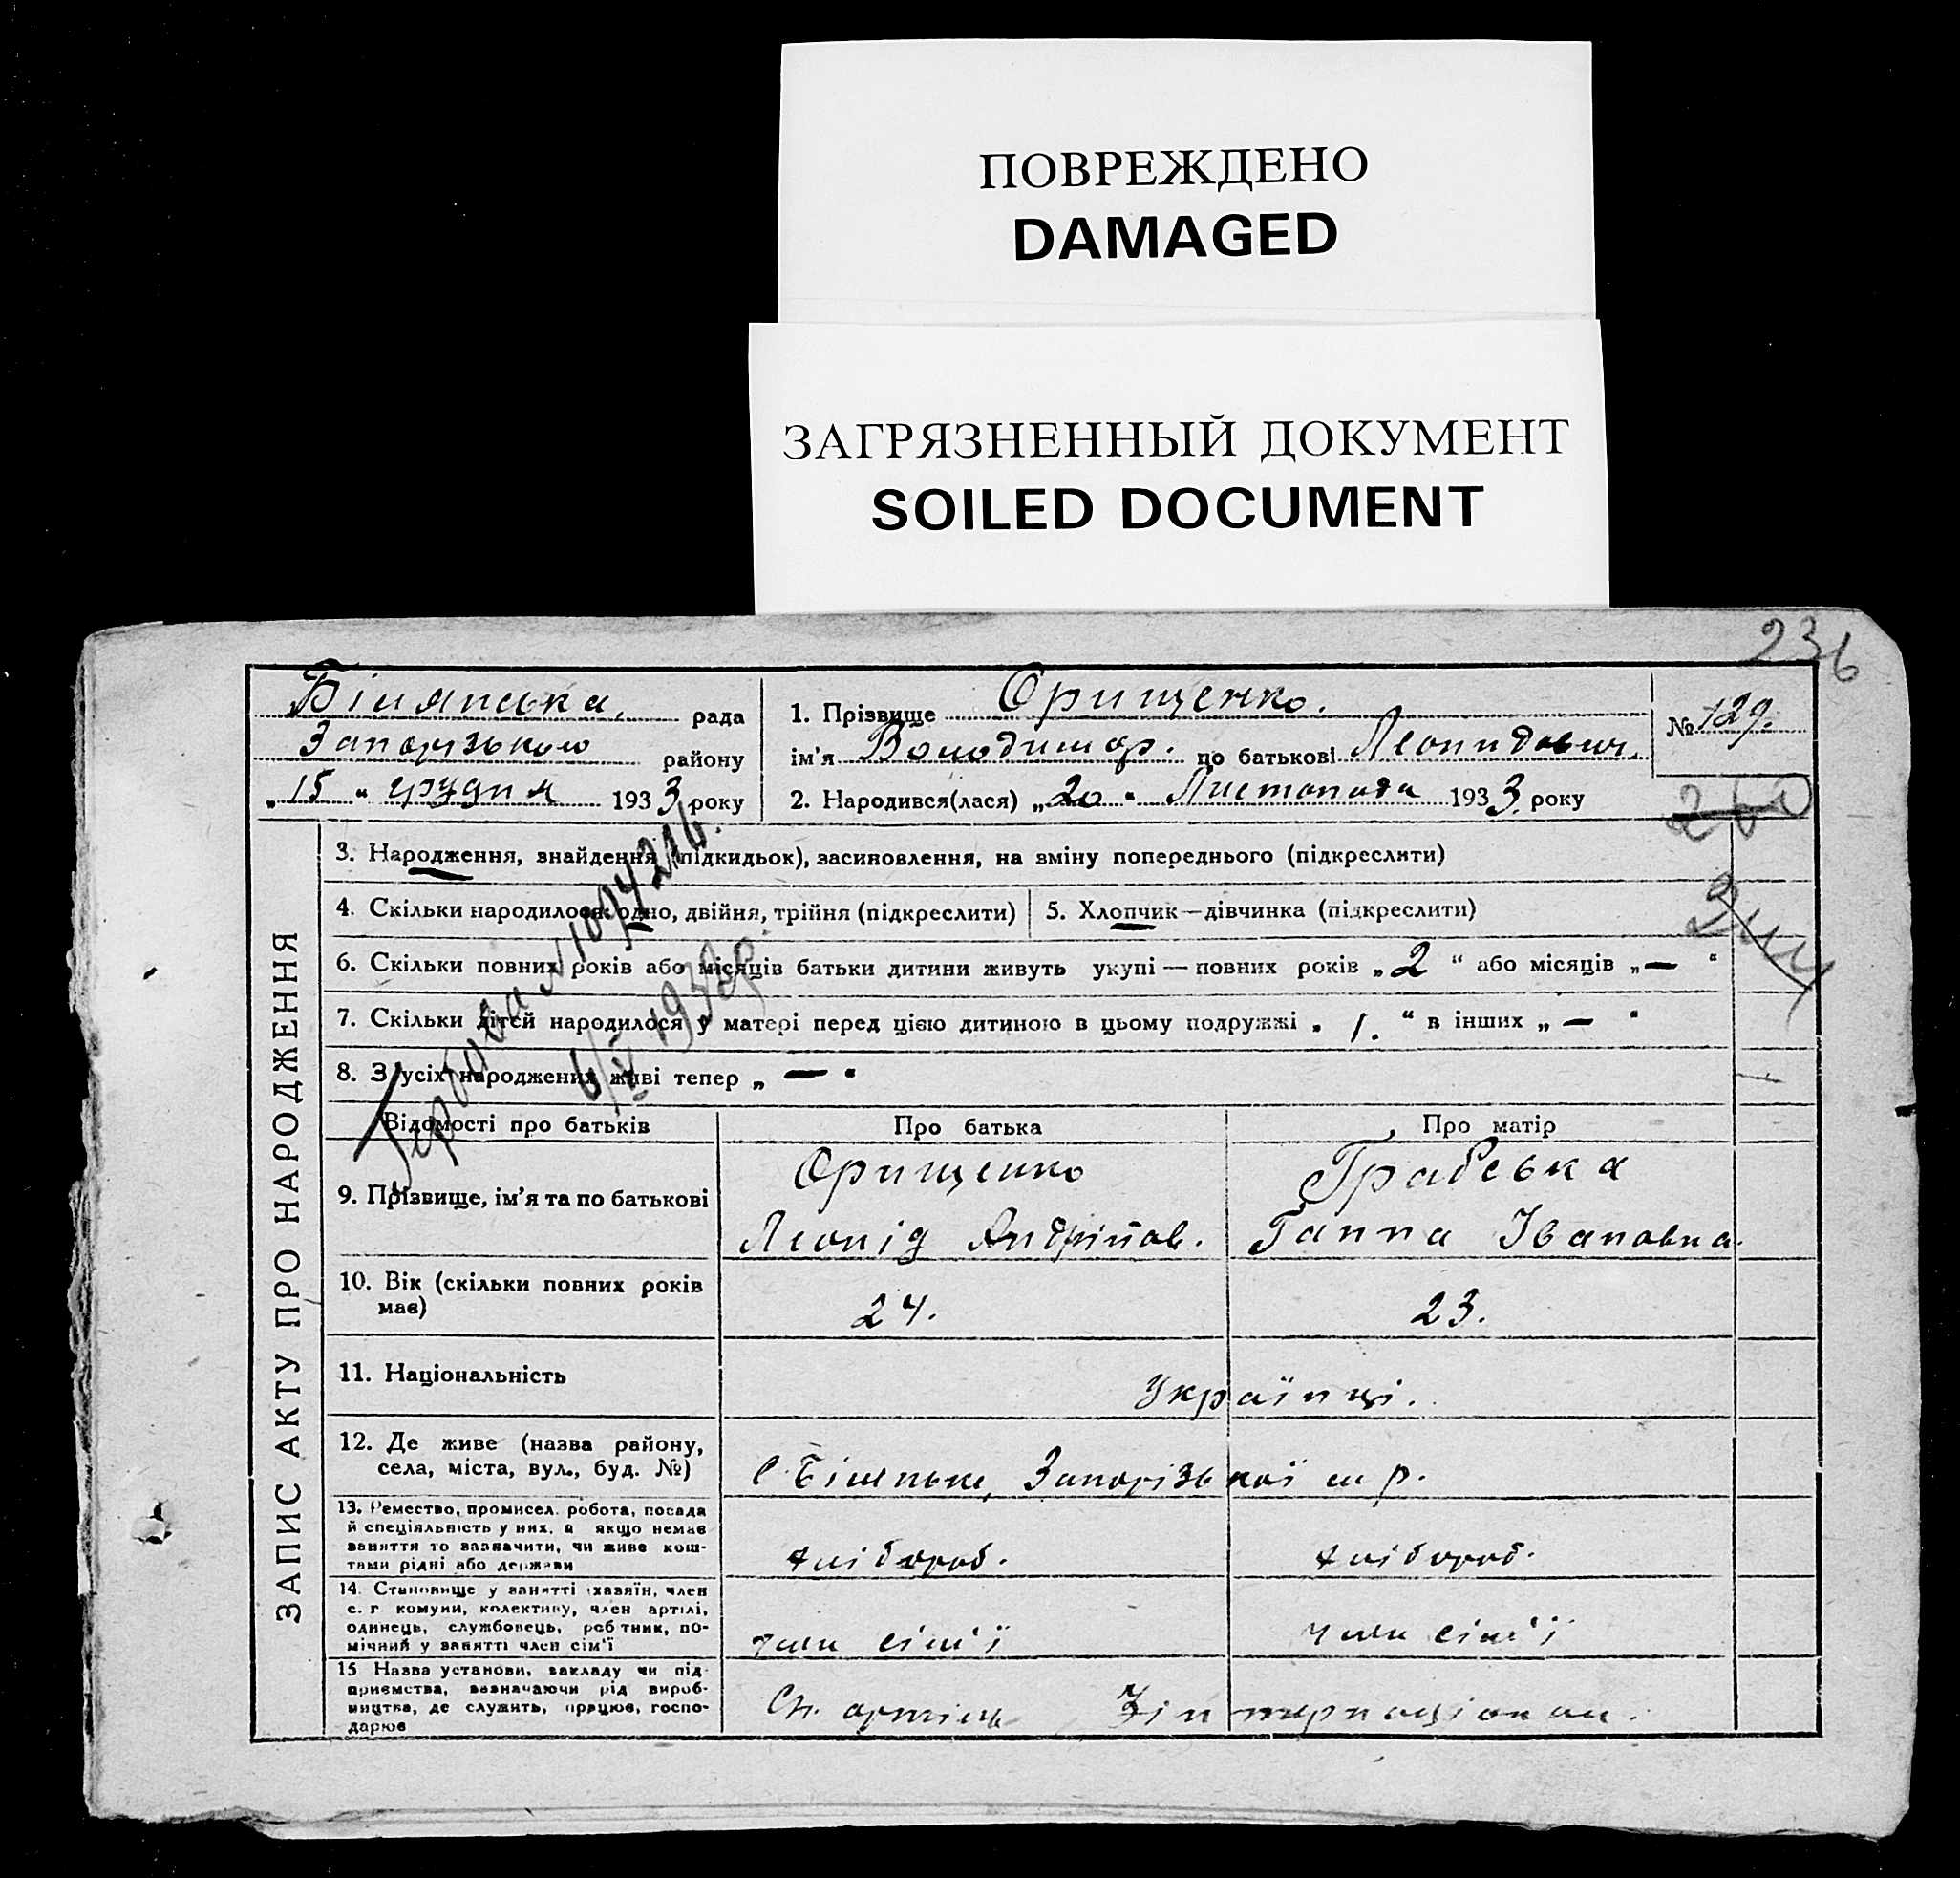 ПОВРЕЖДЕНО
DAMAGED
ЗАГРЯЗНЕННЫЙ ДОКУМЕНТ
SOILED DOCUMENT
236
Білянська рада
Запорізького району
„15“ грудня 1933 року
1. Прізвище Орищенко.
ім'я Володимир. по батькові Леонидович.
2. Народився(лася) „20“ Листопада 1933 року
№ 129.
260
ЗАПИС АКТУ ПРО НАРОДЖЕННЯ
3. Народження, знайдення (підкидьок), засиновлення, на зміну попереднього (підкреслити)
4. Скільки народилося: одно, двійня, трійня (підкреслити)
5. Хлопчик—дівчинка (підкреслити)
6. Скільки повних років або місяців батьки дитини живуть укупі — повних років „2“ або місяців „—“
7. Скільки дітей народилося у матері перед цією дитиною в цьому подружжі „1.“ в інших „—“
8. З усіх народжених живі тепер „—“
Відомості про батьків
Про батька
Про матір
9. Прізвище, ім'я та по батькові
Орищенко
Леонід Андрійов.
Грабська
Ганна Івановна.
10. Вік (скільки повних років
має)
24.
23.
11. Національність
Українці.
12. Де живе (назва району,
села, міста, вул., буд. №)
С. Запорізької м р.
13. Ремество, промисел. робота, посада
й спеціяльність у них, а якщо немає
заняття то зазначити, чи живе кош-
тами рідні або держави
хлібороб.
хлібороб.
14. Становище у занятті (хазяїн, член
с. г. комуни, колективу, член артілі,
одинець, службовець, робітник, по-
мічний у занятті член сім'ї
член сім'ї
член сім'ї
15 Назва установи, закладу чи під-
приємства, зазначаючи рід вироб-
ництва, де служить, працює, госпо-
дарює
Сг. артіль Інтернаціонал.